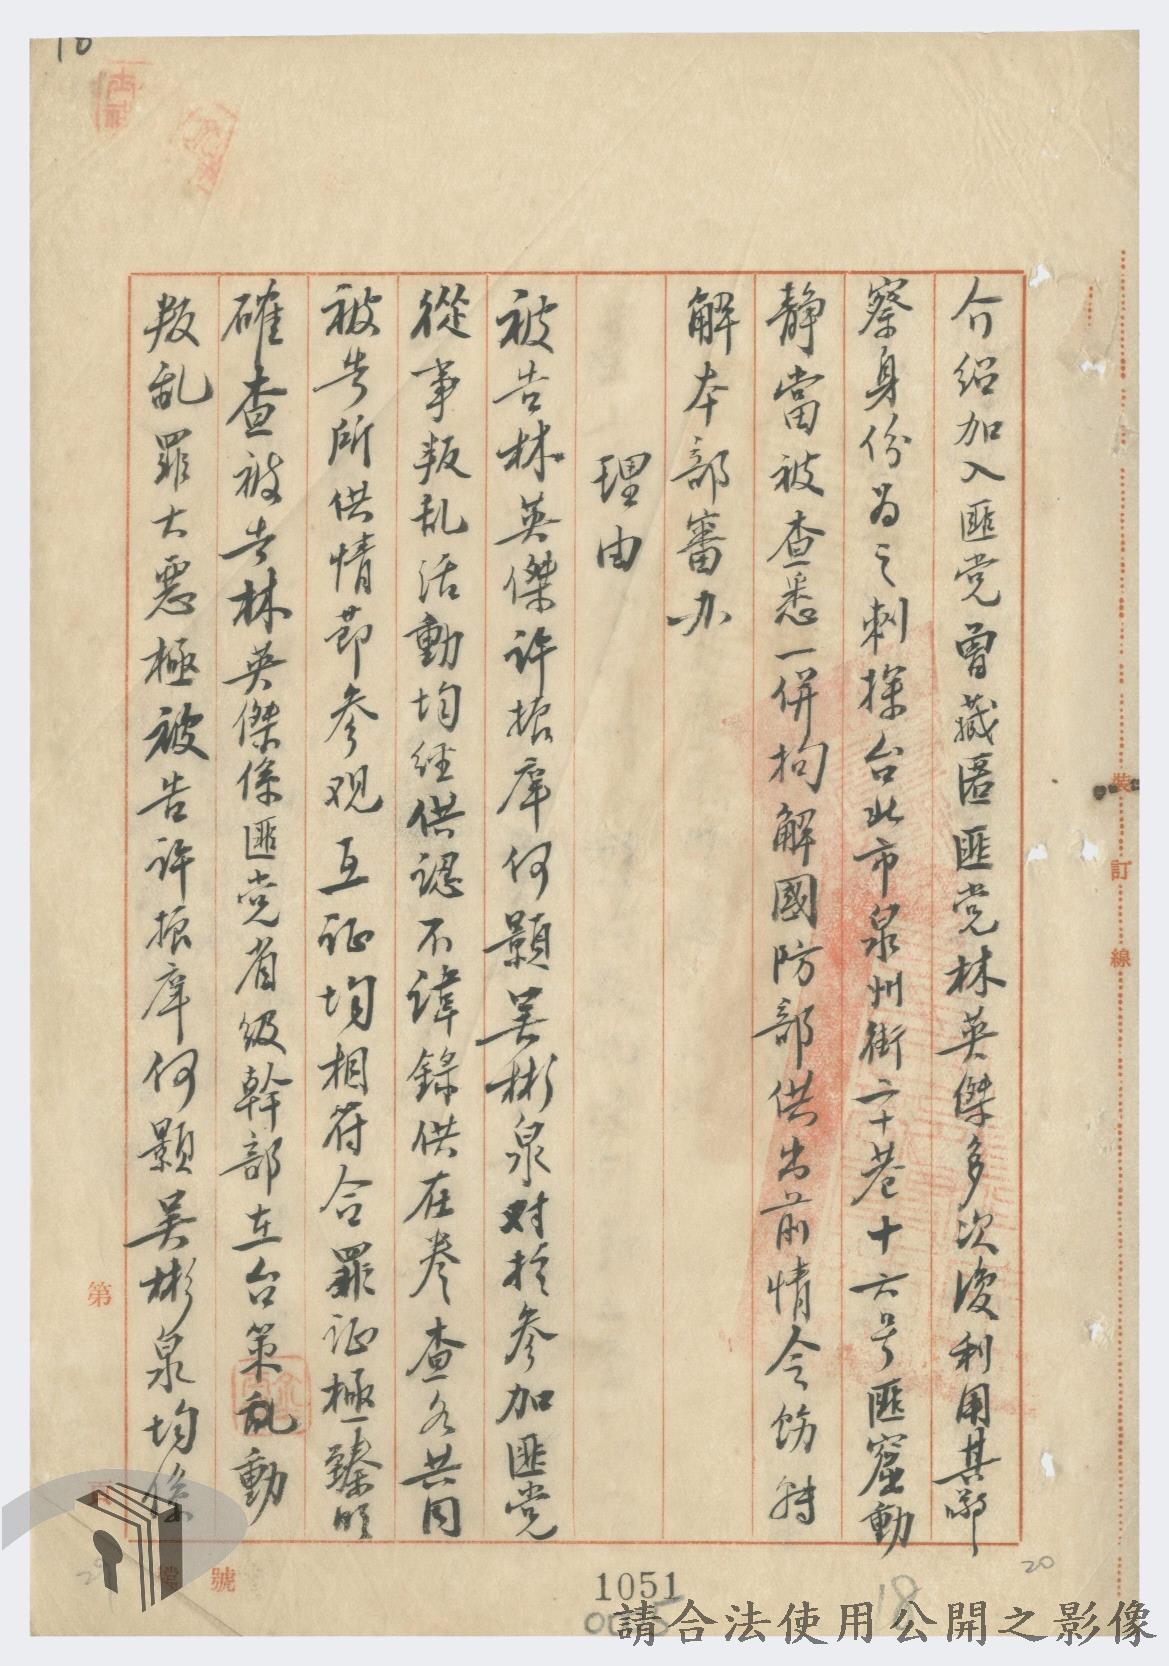 介绍加入匪党曾藏匿匪党林英傑多次復利用其
察身份为之刺探台北市泉州街二十巷十六号匪窟動
静當被查悉一併拘解國防部供出前情令飭轉
解本部審办
理由
被告林英傑许振庠何顯吴彬泉对於参加匪党
從事叛乱活動均经供認不諱錄供在卷查各共同
被告所供情節参观互证均相符合罪证極臻明
確查被告林英傑係匪党省级幹部在台策乱動
叛乱罪大惡極被告许振庠何顯吴彬泉均係
裝
訂
線
第
頁
檔號
1051
18
20
請合法使用公開之影像